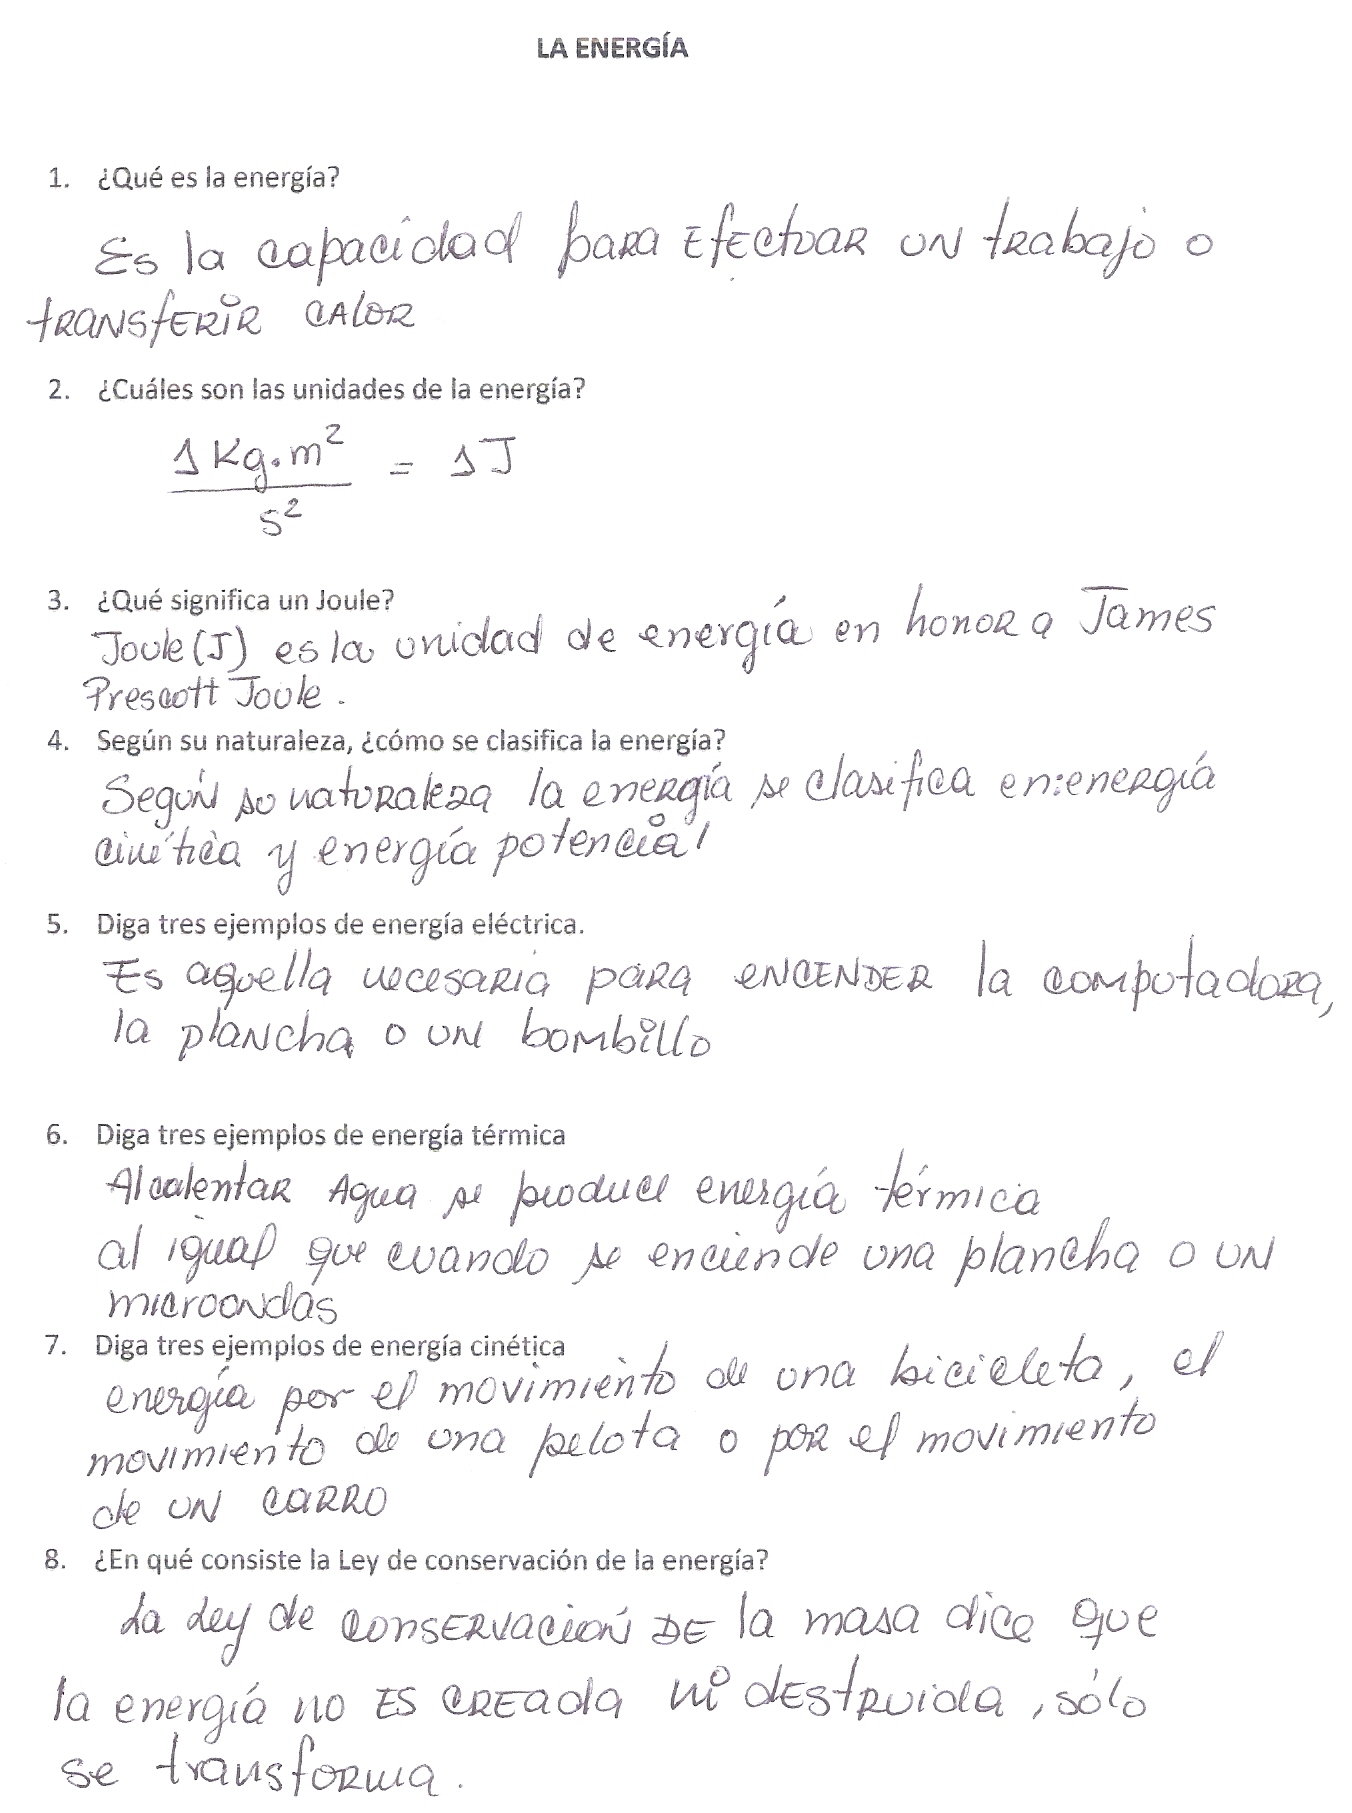 LA ENERGÍA
1. ¿Qué es la energía?
Es la capacidad para efectuar un trabajo o
transferir calor
2. ¿Cuáles son las unidades de la energía?
1 Kg.m² / s² = 1 J
3. ¿Qué significa un Joule?
Joule (J) es la unidad de energía en honor a James
Prescott Joule.
4. Según su naturaleza, ¿cómo se clasifica la energía?
Según su naturaleza la energía se clasifica en: energía
cinética y energía potencial
5. Diga tres ejemplos de energía eléctrica.
Es aquella necesaria para encender la computadora,
la plancha o un bombillo
6. Diga tres ejemplos de energía térmica
Al calentar agua se produce energía térmica
al igual que cuando se enciende una plancha o un
microondas
7. Diga tres ejemplos de energía cinética
energía por el movimiento de una bicicleta, el
movimiento de una pelota o por el movimiento
de un carro
8. ¿En qué consiste la Ley de conservación de la energía?
La Ley de conservación de la masa dice que
la energía no es creada ni destruida, sólo
se transforma.